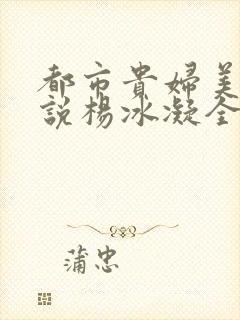 都市貴婦美
說楊冰凝全
蒲忠